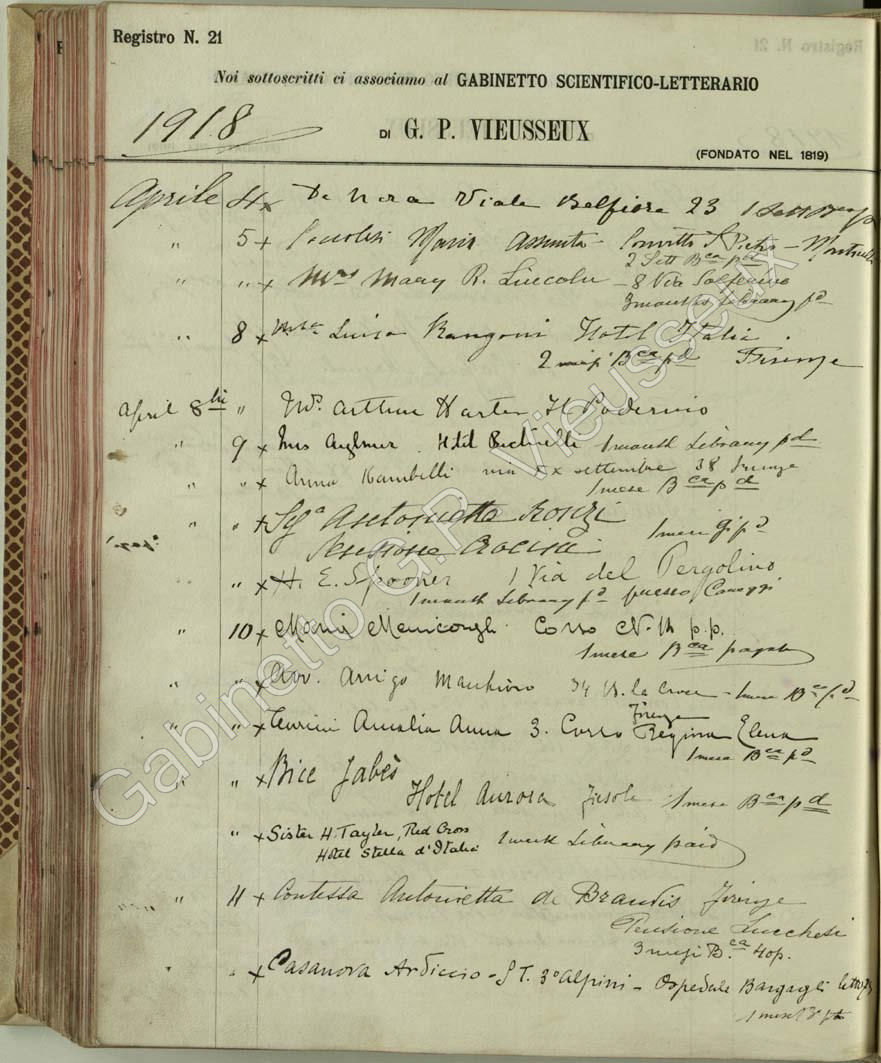 Registro N. 21
Noi sottoscritti ci associamo al GABINETTO SCIENTIFICO-LETTERARIO
1918
DI G. P. VIEUSSEUX
(FONDATO NEL 1819)
Aprile 4 x De Nora Viale Belfiore 23 1 Sett Bca pd
" 5 x Maria Assunta - Convitto S. Pietro -
2 Sett Bca pd
" " x Mrs Mary R. Lincoln - 8 Via Solferino
3 months library pd
" 8 x Luisa Rangoni Hotel Italia
2 mesi Bca pd Firenze
April 8th " Mrs. Arthur Harter Il Podernio
" 9 x Miss Aylmer. Hotel 1 month Library pd
" " x Anna via xx settembre 38 Firenze
1 mese Bca pd
" " x Sga Antonietta Ronzi 1 mese pd
Pensione
" x H. E. Spooner 1 Via del Pergolino
1 month Library pd presso
" 10 x Maria Corso N. p.p.
1 mese Bca pagato
" " x Avv. Arrigo 34 la Croce - 1 mese Bca pd
" " x Amalia Anna 3. Corso Regina Elena
Firenze
1 mese Bca pd
" " x Bice Jabès
Hotel Aurora Fiesole 1 mese Bca pd
" x Sister H. Tayler, Red Cross
Hotel Stella d'Italia 1 week Library paid
" 11 x Contessa Antonietta de Brandis Firenze
Pensione Lucchesi
3 mesi B.ca 40p.
" x Casanova Ardiccio - S. T. 3° Alpini - Ospedale Bargagli
1 mese
Gabinetto G.P. Vieusseux